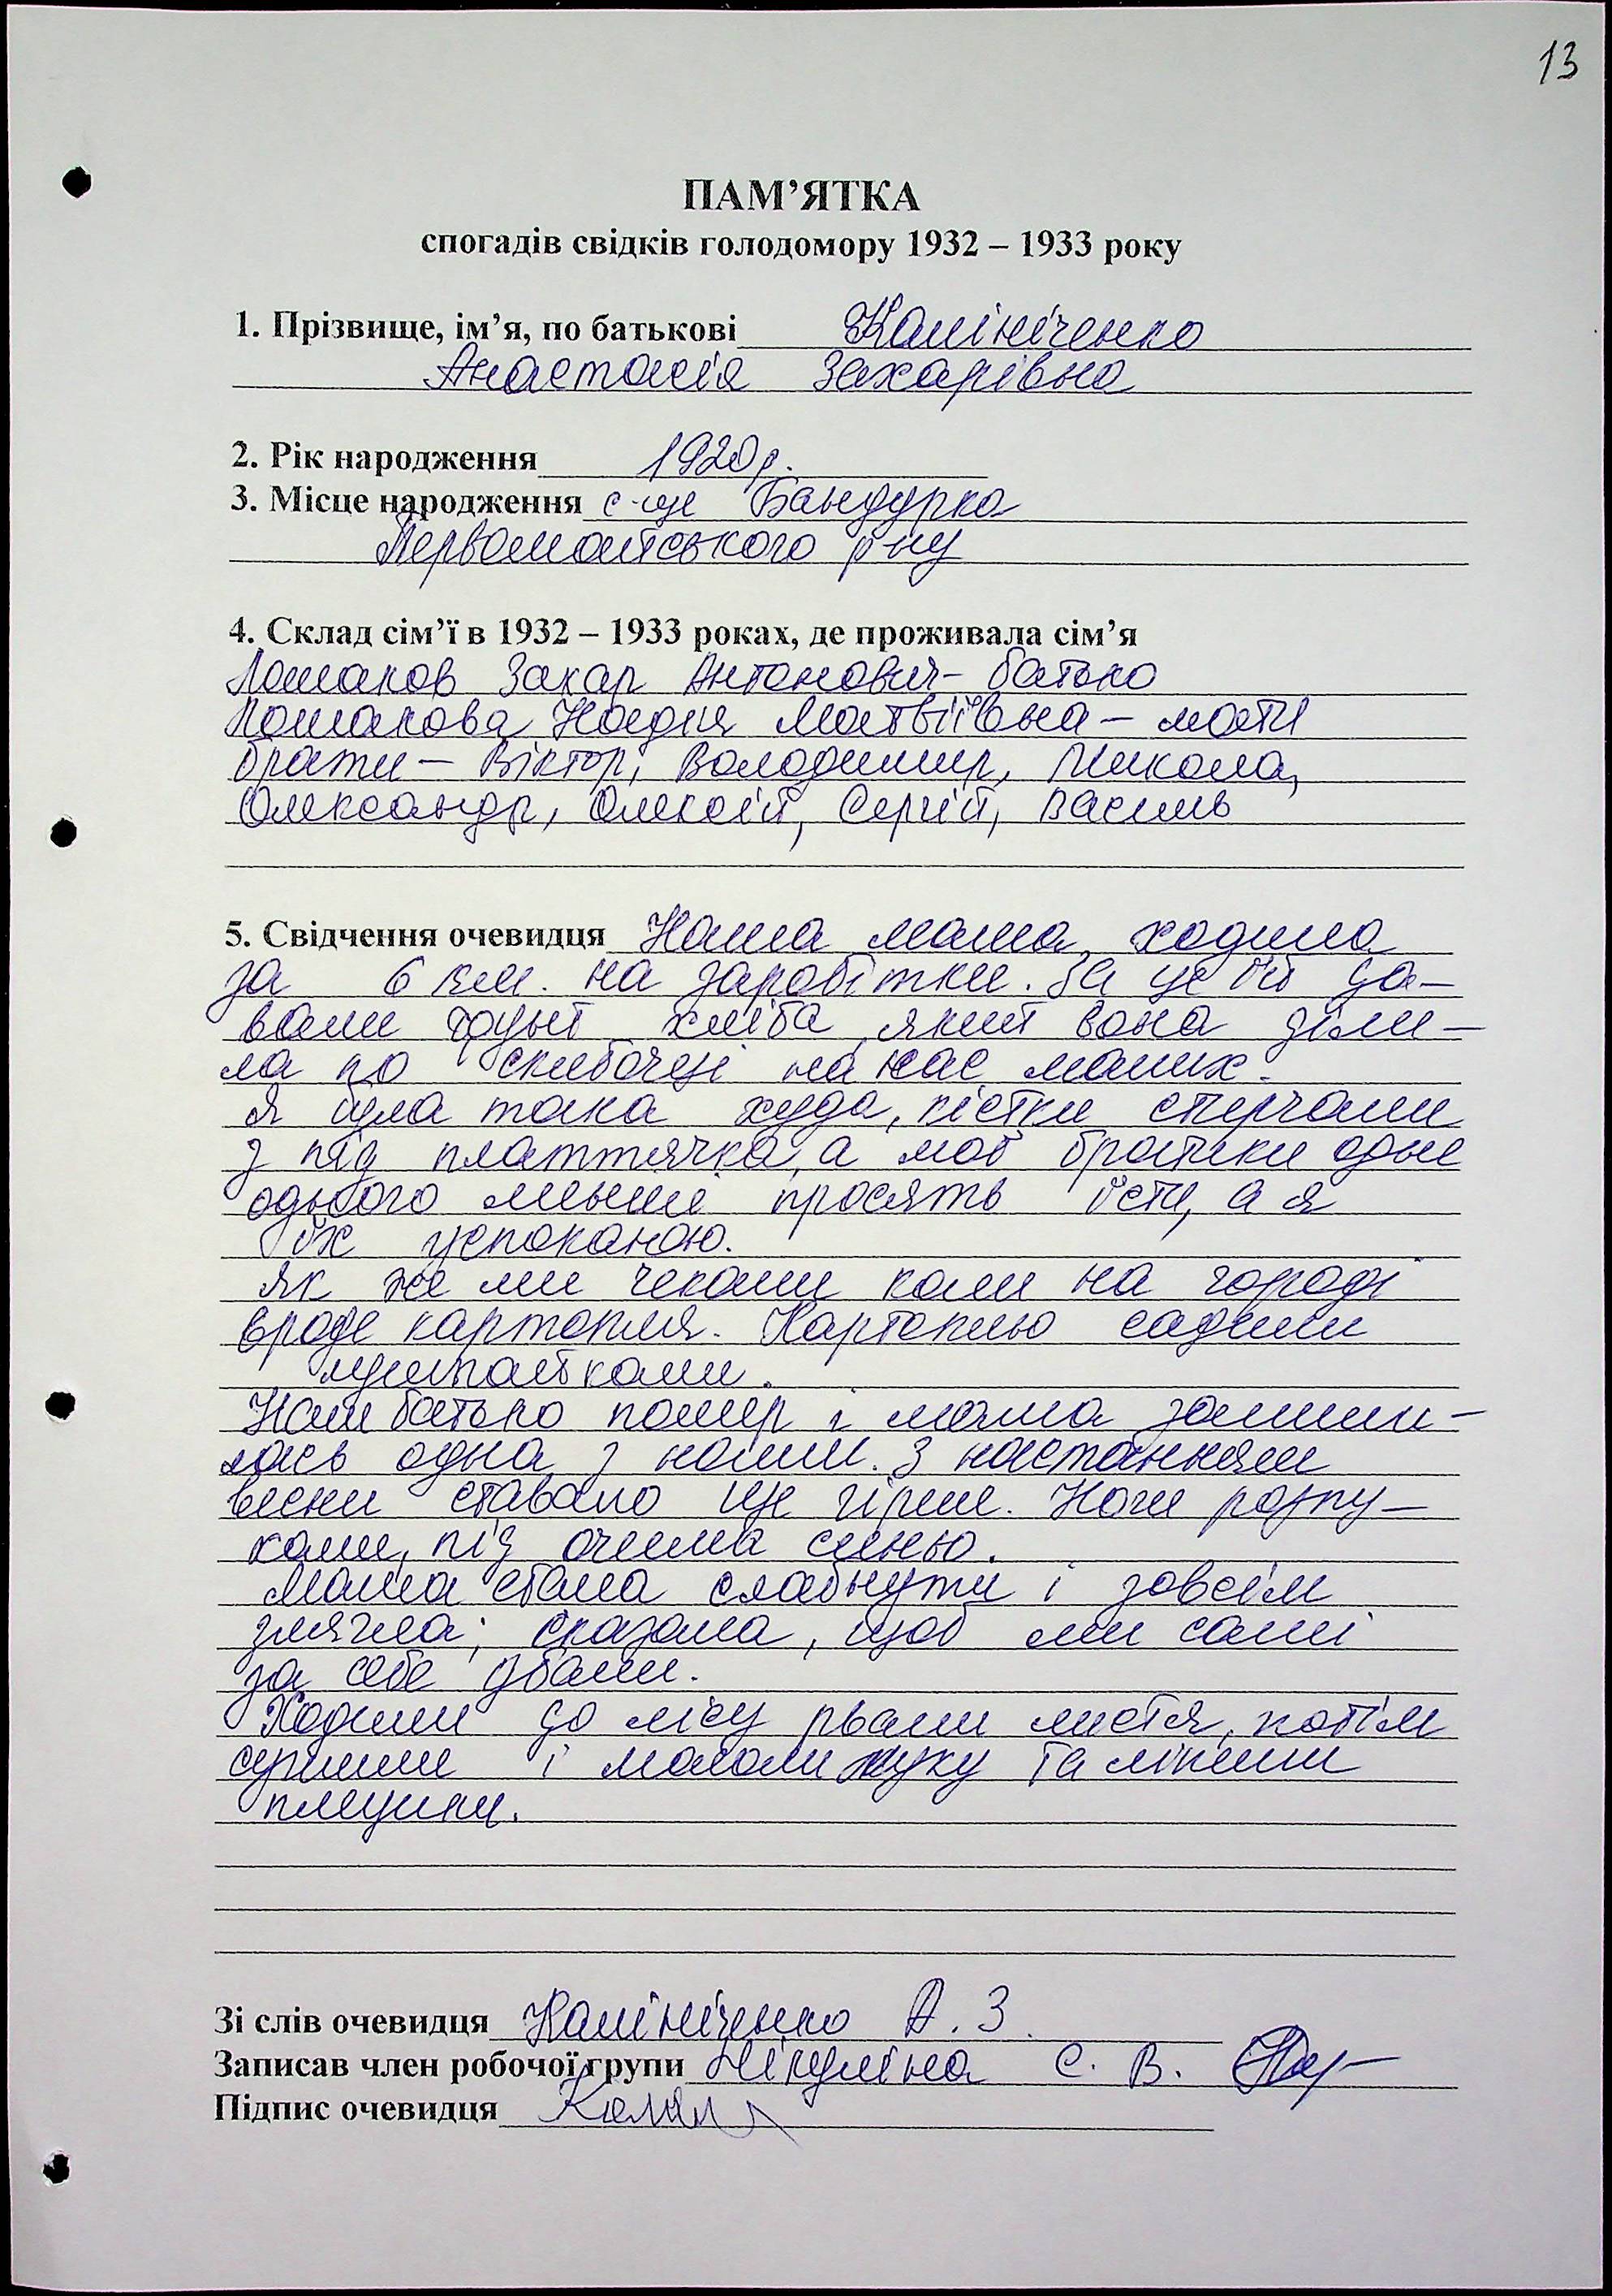 13
ПАМ'ЯТКА
спогадів свідків голодомору 1932 – 1933 року
1. Прізвище, ім'я, по батькові Калініченко
Анастасія Захарівна
2. Рік народження 1920 р.
3. Місце народження с-ще Бандурка
Первомайського р-ну
4. Склад сім'ї в 1932 – 1933 роках, де проживала сім'я
Лошаков Захар Антонович – батько
Лошакова Надія Матвіївна – мати
брати – Віктор, Володимир, Микола,
Олександр, Олексій, Сергій, Василь
5. Свідчення очевидця Наша мама ходила
за 6 км. на заробітки. За це їй да-
вали хліба, який вона діли-
ла по скибочці на нас малих.
Я була така худа, кістки стирчали
з під платтячка, а мої братики одне
одного менші просять їсти, а я
їх успокаюю.
Як же ми чекали коли на городі
вроде картопля. Картоплю садили
лушпайками.
Наш батько помер і мама залиши-
лась одна з нами. З настанням
весни ставало ще гірше. Ноги розпу-
хали, під очима синьо.
Мама стала слабнути і зовсім
злягла; сказала, щоб ми самі
за себе дбали.
Ходили до лісу рвали листя, потім
сушили і мололи муку та ліпили
плецики.
Зі слів очевидця Калініченко А. З.
Записав член робочої групи Нікуліна С. В.
Підпис очевидця